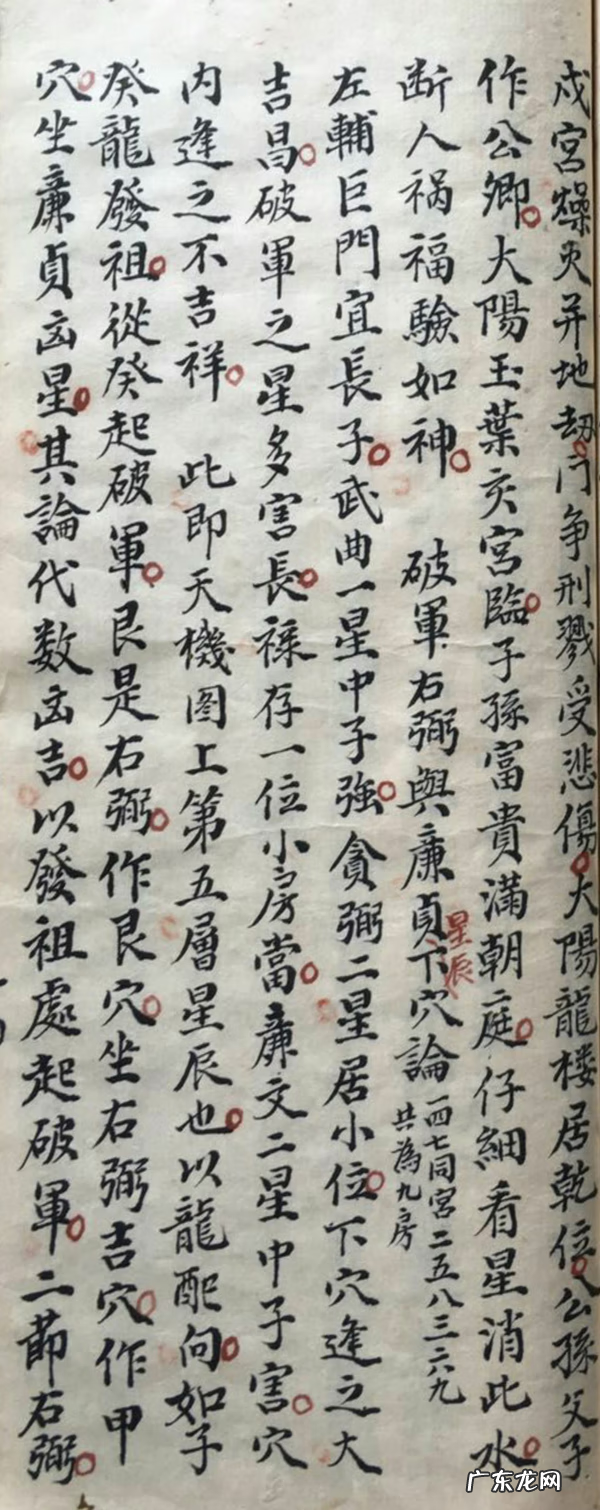 戍宮燥火并地劫门争刑戮受悲傷大陽龍楼居乾位公孫父子
作公卿大陽玉葉亥宮臨子孫富貴滿朝庭仔細看星消此水
断人祸福驗如神 破軍右弼與廉貞下穴論 一四七同宮二五八三六九
共為九房
星辰
左輔巨門宜長子武曲一星中子強貪弼二星居小位下穴逢之大
吉昌破軍之星多害長禄存一位小房當廉文二星中子害穴
内逢之不吉祥 此即天機图上第五層星辰也以龍配向如子
癸龍發祖從癸起破軍艮是右弼作艮穴坐右弼吉穴作甲
穴坐廉貞凶星其論代数凶吉以發祖處起破軍二節右弼
广东龙网